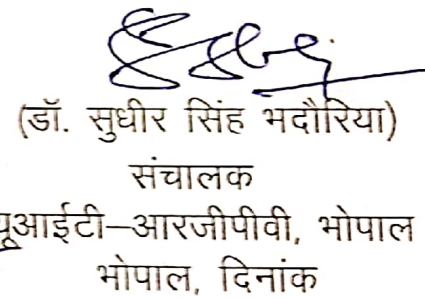 (डॉ. सुधीर सिंह भदौरिया)
संचालक
यूआईटी–आरजीपीवी, भोपाल
भोपाल, दिनांक